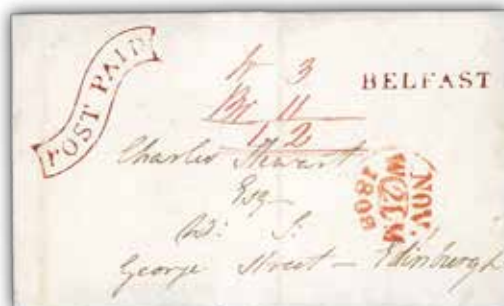 POST PAID
3
BELFAST
Br 11
1 2
Charles Stewart
Esq
W: S:
George Street - Edinburgh
NOV.
W 21 M
1808